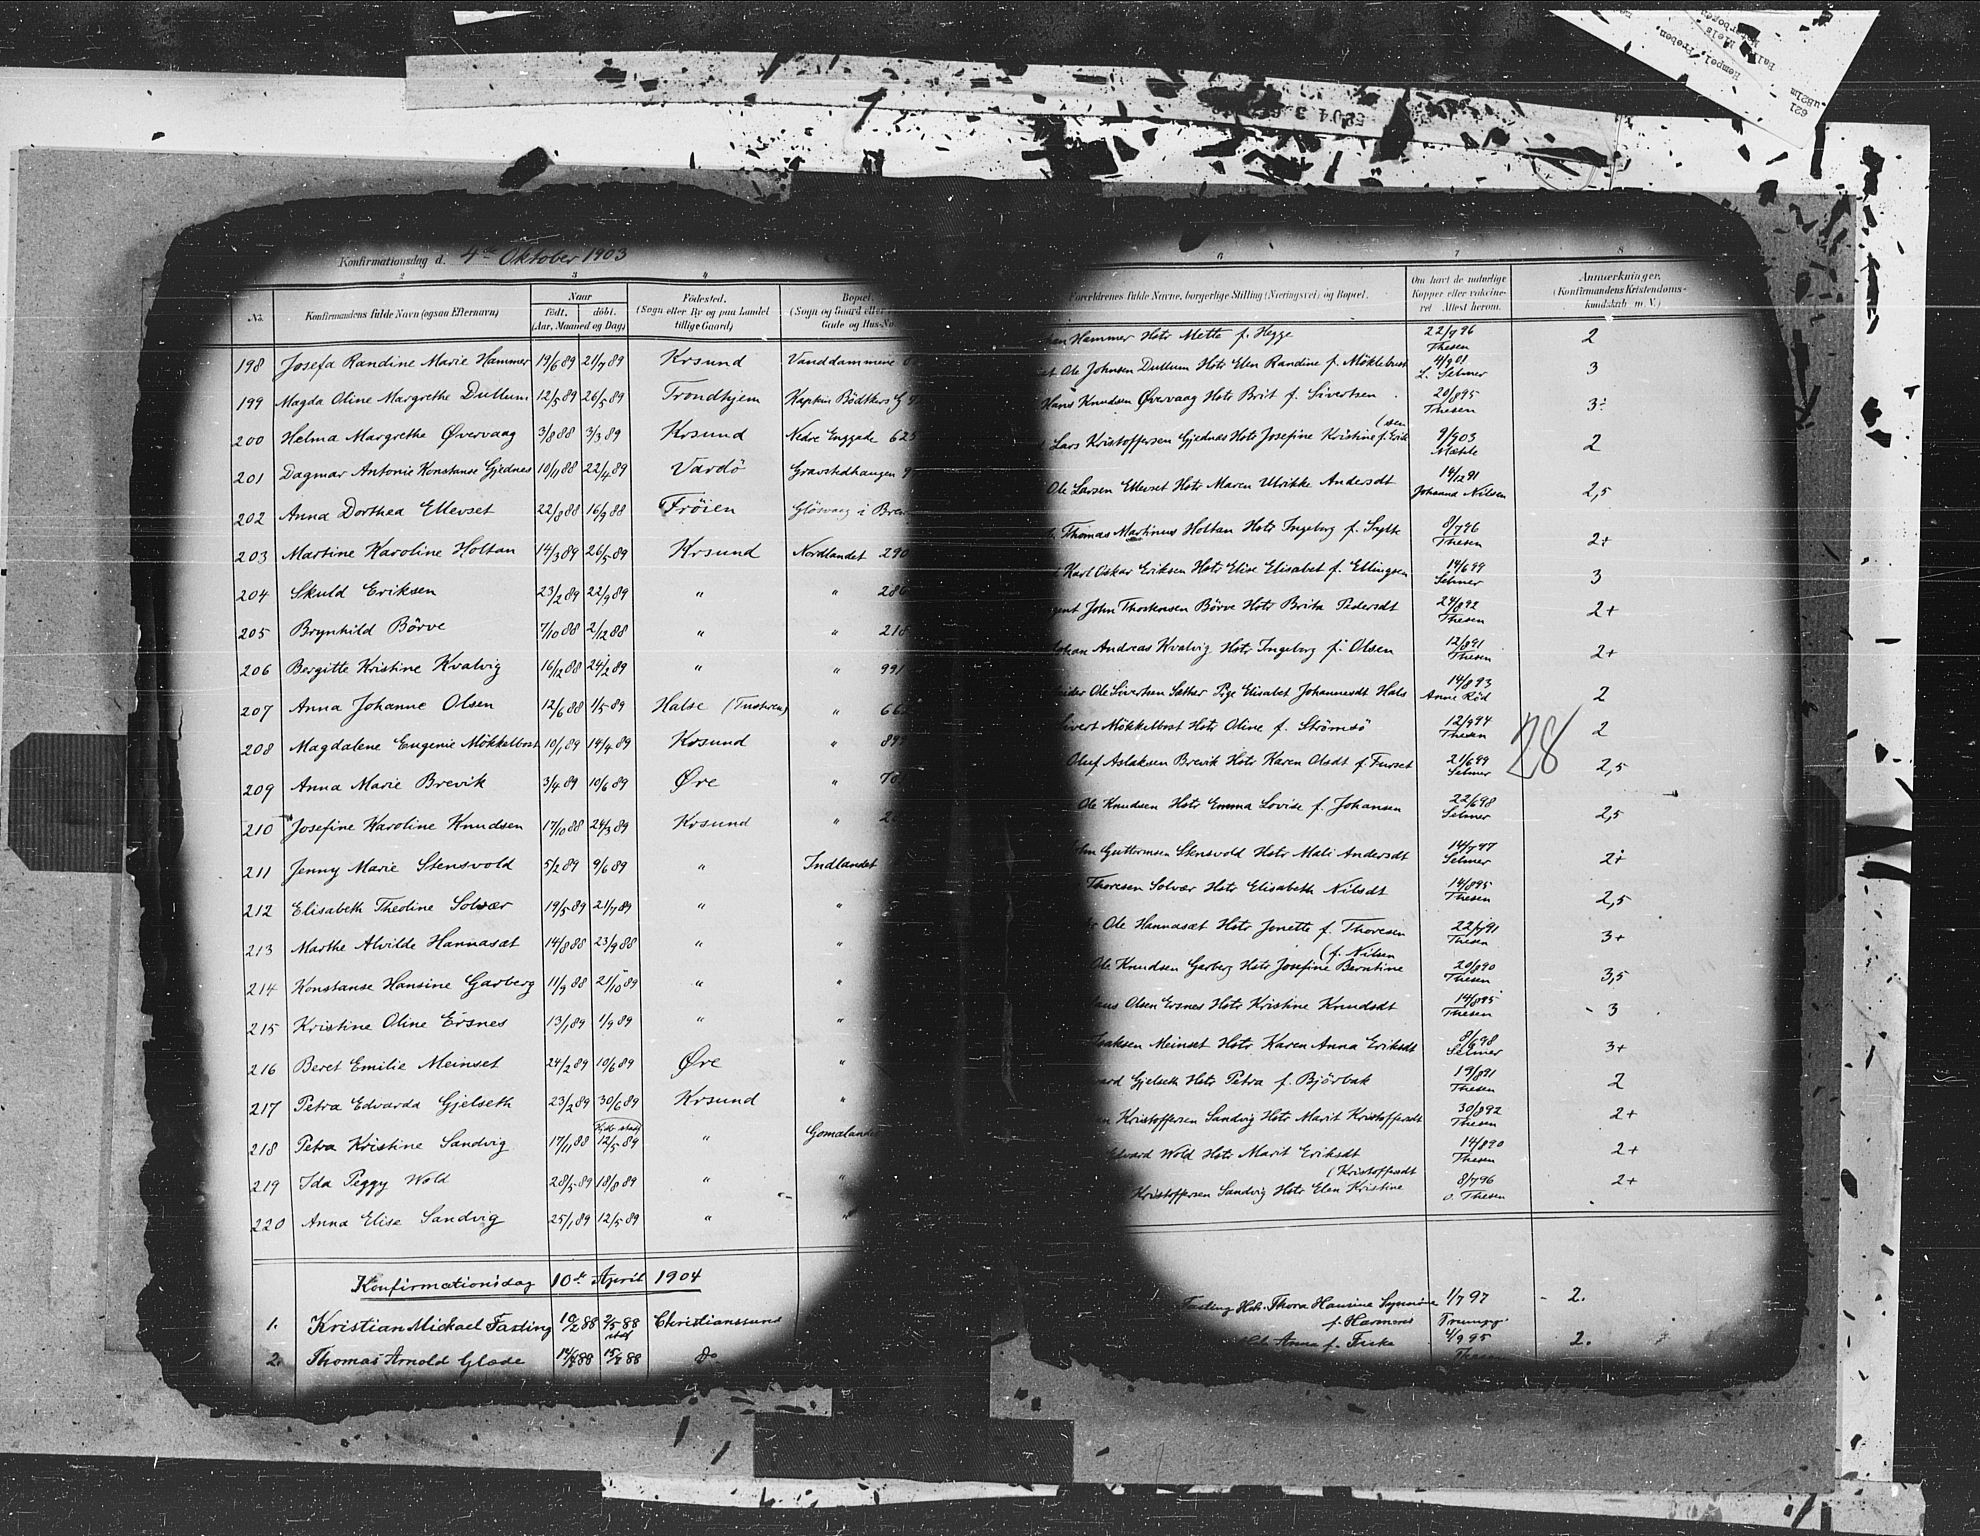 Konfirmationsdag d. 4de Oktober 1903
2 3 4
No. Konfirmandens fulde Navn (ogsaa Efternavn) Naar født. døbt. (Aar, Maaned og Dag) Fødested. (Sogn eller By og paa Landet tillige Gaard) Bopæl. (Sogn og Gaard eller Gade og Hus-No.
198 Josefa Randine Marie Hammer 19/6 89 21/7 89 Krsund Vanddammene
199 Magda Oline Margrethe Dullum 12/5 89 26/5 89 Trondhjem Kaptein Bødtkers G
200 Helma Margrethe Øvervaag 3/8 88 3/3 89 Krsund Nedre Enggade 625
201 Dagmar Antonie Konstanse Gjednes 10/11 88 22/4 89 Vardö Gravstedhaugen
202 Anna Dorthea Ellevset 22/8 88 16/9 88 Fröien Glösvaag i
203 Martine Karoline Holtan 14/3 89 26/5 89 Krsund Nordlandet 290
204 Skuld Eriksen 23/2 89 22/9 89 " " 286
205 Brynhild Börve 7/10 88 2/12 88 " " 218
206 Bergitte Kristine Kvalvig 16/12 88 24/2 89 " " 991
207 Anna Johanne Olsen 12/6 88 1/5 89 Halse (Tustven) "
208 Magdalene Eugenie Mökkelbost 10/1 89 14/4 89 Krsund "
209 Anna Marie Brevik 3/4 89 10/6 89 Øre "
210 Josefine Karoline Knudsen 17/10 88 24/3 89 Krsund "
211 Jenny Marie Stensvold 5/2 89 9/6 89 " Indlandet
212 Elisabeth Theoline Solvær 19/5 89 21/7 89 " "
213 Marthe Alvilde Hannasæt 14/8 88 23/9 88 " "
214 Konstanse Hansine Garberg 11/9 88 21/10 89 " "
215 Kristine Oline Ersnes 13/1 89 1/9 89 " "
216 Beret Emilie Meinset 24/2 89 10/6 89 Øre "
217 Petra Edvarda Gjelseth 23/2 89 30/6 89 Krsund "
218 Petra Kristine Sandvig 17/11 88 12/5 89 " Gomalandet
219 Ida Peggy Wold 28/5 89 18/8 89 " "
220 Anna Elise Sandvig 25/1 89 12/5 89 " "
Konfirmationsdag 10de April 1904
1. Kristian Mickael Fasting 88 2/5 88 Christianssund
2. Thomas Arnold Glæde 88 88 Do
6 7 8
Forældrenes fulde Navne, borgerlige Stilling (Næringsvei) og Bopæl. Om havt de naturlige Kopper eller vaksineret Attest herom. Anmærkninger. (Konfirmandens Kristendomskundskab m. V.)
Hammer Hstr Mette f. Hegge 22/7 96 Thesen 2
Ole Johnsen Dullum Hstr Elen Randine f. Mökkelbost 4/9 01 L. Selmer 3
Hans Knudsen Øvervaag Hstr Brit f. Sivertsen 20/8 95 Thesen 3
Lars Kristoffersen Gjednæs Hstr Josefine Kristine f. Erik(sen 9/9 03 2
Ole Larsen Ellevset Hstr Maren Ulrikke Andersdt 14/12 91 Johanna Nilsen 2,5
Thomas Martinus Holtan Hstr Ingeborg f. Sylte 8/7 96 Thesen 2+
Karl Oskar Eriksen Hstr Elise Elisabet f. Ellingsen 14/6 99 Selmer 3
John Thorkensen Börve Hstr Brita Pedersdt 24/8 92 Thesen 2+
Johan Andreas Kvalvig Hstr Ingeborg f. Olsen 12/8 91 Thesen 2+
Ole Sivertsen Sæther Pige Elisabet Johannesdt Hals 14/8 93 Anne Röd 2
Sivert Mökkelbost Hstr Oline f. Strömsö 12/9 94 Thesen 2
28
Oluf Aslaksen Brevik Hstr Karen Olsdt f. Furset 21/6 99 Selmer 2,5
Ole Knudsen Hstr Emma Lovise f. Johansen 22/6 98 Selmer 2,5
Guttormsen Stensvold Hstr Mali Andersdt 14/7 97 Selmer 2+
Thoresen Solvær Hstr Elisabeth Nilsdt 14/8 95 Thesen 2,5
Ole Hannasæt Hstr Jonette f. Thoresen 22/7 91 Thesen 3+
Ole Knudsen Garberg Hstr Josefine Berntine (f. Nilsen 20/8 90 Thesen 3,5
Olsen Ersnes Hstr Kristine Knudsdt 14/8 95 Thesen 3
Isaksen Meinset Hstr Karen Anna Eriksdt 8/6 98 Selmer 3+
Gjelseth Hstr Petra f. Björbak 19/8 91 Thesen 2
Kristoffersen Sandvig Hstr Marit Kristoffersdt 30/8 92 Thesen 2+
Edvard Wold Hstr Marit Eriksdt 14/8 90 Thesen 2+
Kristoffersen Sandvig Hstr Elen Kristine (Kristoffersdt 8/7 96 O. Thesen 2+
Fasting Hstr. Thora Hansine 1/7 97 2.
4/9 95
Anna f. Fiske 2.